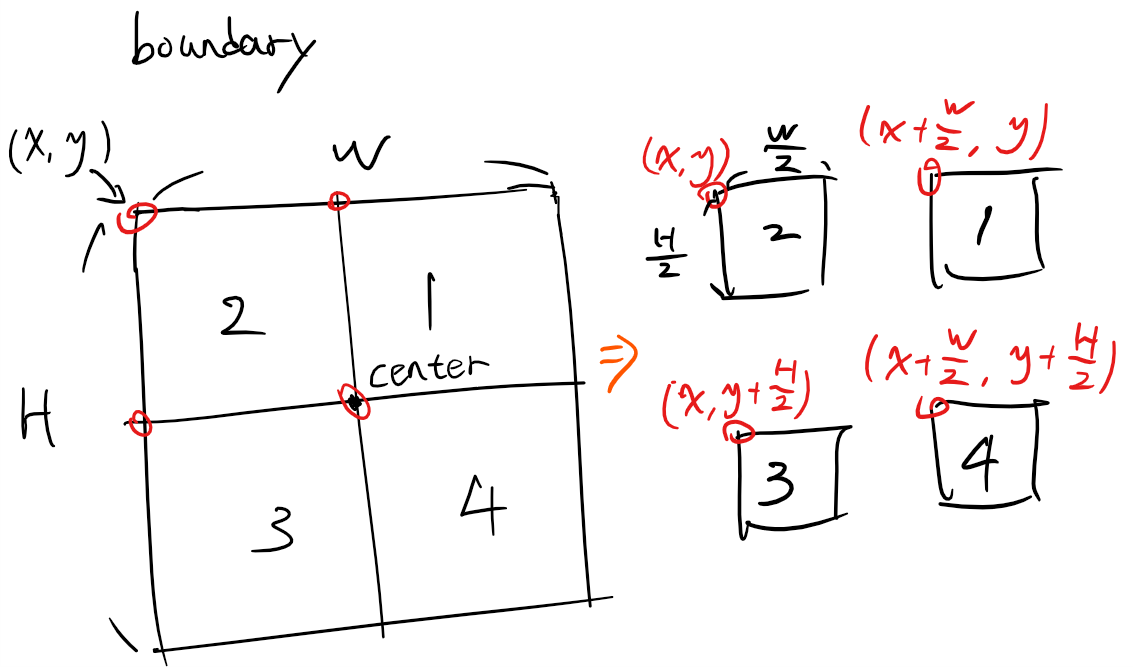 boundary
(x, y)
W
H
2
1
center
3
4
⇒
(x, y)
W/2
H/2
2
(x+W/2, y)
1
(x, y+H/2)
3
(x+W/2, y+H/2)
4